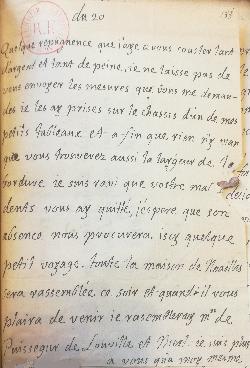 du 20
Quelque repugnance que j'aye a vous couster tant
d'argent et tant de peine, ie ne laisse pas de
vous envoyer les mesures que vous me deman-
dés ie les ay prises sur le chassis d'un de mes
petits tableaux et a fin que rien n'y man
que vous trouverez aussi la largeur de la
bordure ie suis ravi que vostre mal de
dents vous ay quitté, j'espere que son
absence nous procurera, icy quelque
petit voyage. toutte la maison de Noailles
sera rassemblée ce soir et quand il vous
plaira de venir ie rasembleray
Puissegur de Louville et ie suis plus
a vous que moy mesme